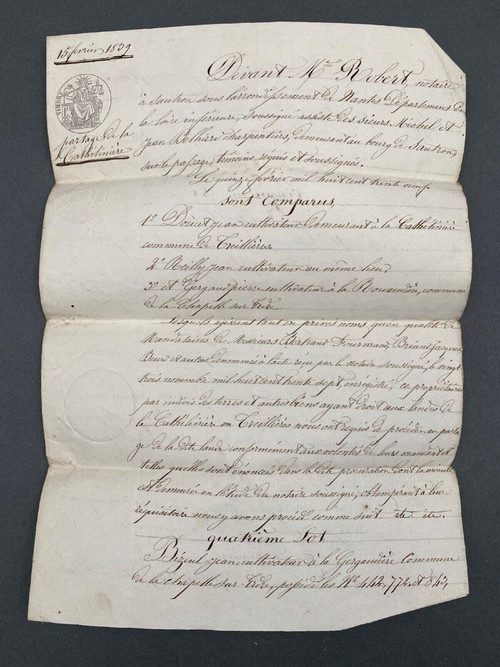 15 février 1839
partage de la
Cathelinière
Devant Me Robert notaire
à Sautron sous l'arrondissement de Nantes Département de
la Loire inférieure, soussigné assisté des sieurs Michel et
Jean charpentiers, demeurant au bourg de Sautron,
sur le passage, témoins requis et soussignés.
Le quinze février mil huit cent trente neuf
sont Comparus,
1o Doucet jean cultivateur demeurant à la Cathelinière
commune de Treillières
2o Reilly jean cultivateur au même lieu
3o Et pierre cultivateur à la commune
de la Chapelle sur Erdre.
Lesquels agissent tant en privés noms, qu'en qualité de
Mandataires de Messieurs Bertrand Briand jacques
et autres dénommés à l'acte reçu par le notaire soussigné, le vingt
trois novembre mil huit cent trente sept, enregistré, et propriétaires
par indivis des terres et autres biens ayant droit aux landes de
la Cathelinière en Treillières nous ont requis de procéder au parta
ge de la dite lande conformément aux volontés de leurs mandants et
telles quelles sont énoncées dans la dite procuration dont la minute
est demeurée en l'étude du notaire soussigné, obtempérant à leur
réquisitoire nous y avons procédé comme suit etc etc
quatrième Lot
Bizeul jean cultivateur à la Commune
de la Chapelle sur Erdre, possède les Nos 442, 772 et 842,